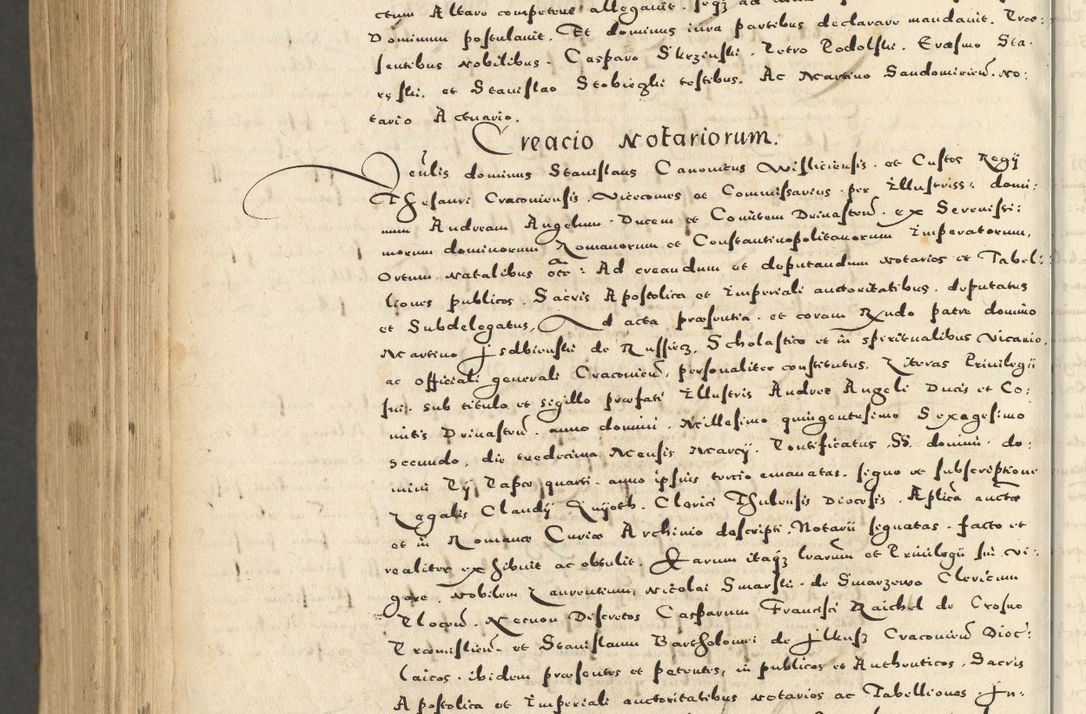 ctum Altare competens allegauit.
Dominum postulauit. Et dominus iura partibus declarare mandauit. Præ:
sentibus Nobilibus. Casparo Skrzinski. Petro Podolski. Erasmo Sta:
et Stanislao testibus. Ac Martino Sandomirien̄. No:
tario Actuario.
Creacio Notariorum.
dominus Stanislaus Canonicus Wisliciensis. et Custos Regij
Thesauri Cracoviensis. Vicecomes ac Commissarius. per Illustriss: domi:
num Andream Angelum. Ducem et Comitem Drinasten̄. ex Serenissi:
morum dominorum Romanorum et Constantinopolitanorum Imperatorum,
Ortum Natalibus etc: Ad creandum et deputandum Notarios et Tabel:
liones publicos. Sacris Apostolica et Imperiali auctoritatibus. deputatus
et Subdelegatus, Ad acta præsentia. et coram Rndo patre domino
Martino Isdbienski de Russiecz. Scholastico et in spiritualibus Vicario,
ac Officiali generali Cracovien̄. personaliter constitutus, Literas Priuilegij
sui. sub titulo et sigillo præfati Illustris Andreæ Angeli Ducis et Co:
mitis Drinasten̄. anno domini. Millesimo quingentesimo Sexagesimo
secundo, die tredecima Mensis Marcij. Pontificatus. SS. domini. do:
mini Pij Papæ quarti. anno ipsius tercio emanatas. signo et subscriptione
Regalis Claudij Clerici Thulensis Diocesis. Aplica aucte
et in Romanæ Curiæ Archiuio descripti. Notarii signatas. facto et
realiter exhibuit ac obtulit. Harum itaq; lrarum et Priuilegii sui vi:
gore. Nobilem Laurentium, Nicolai Smarski. de Smarzewo Clericum
Plocen̄. Necnon Discretos Casparum Francisci Raichel de Crosno
Præmislien̄. et Stanislaum Bartholomei de Cracovien̄ Dioc:
laicos. ibidem præsentes et petentes, in publicos et Authenticos. Sacris
Apostolica et Imperiali auctoritatibus Notarios ac Tabelliones In: